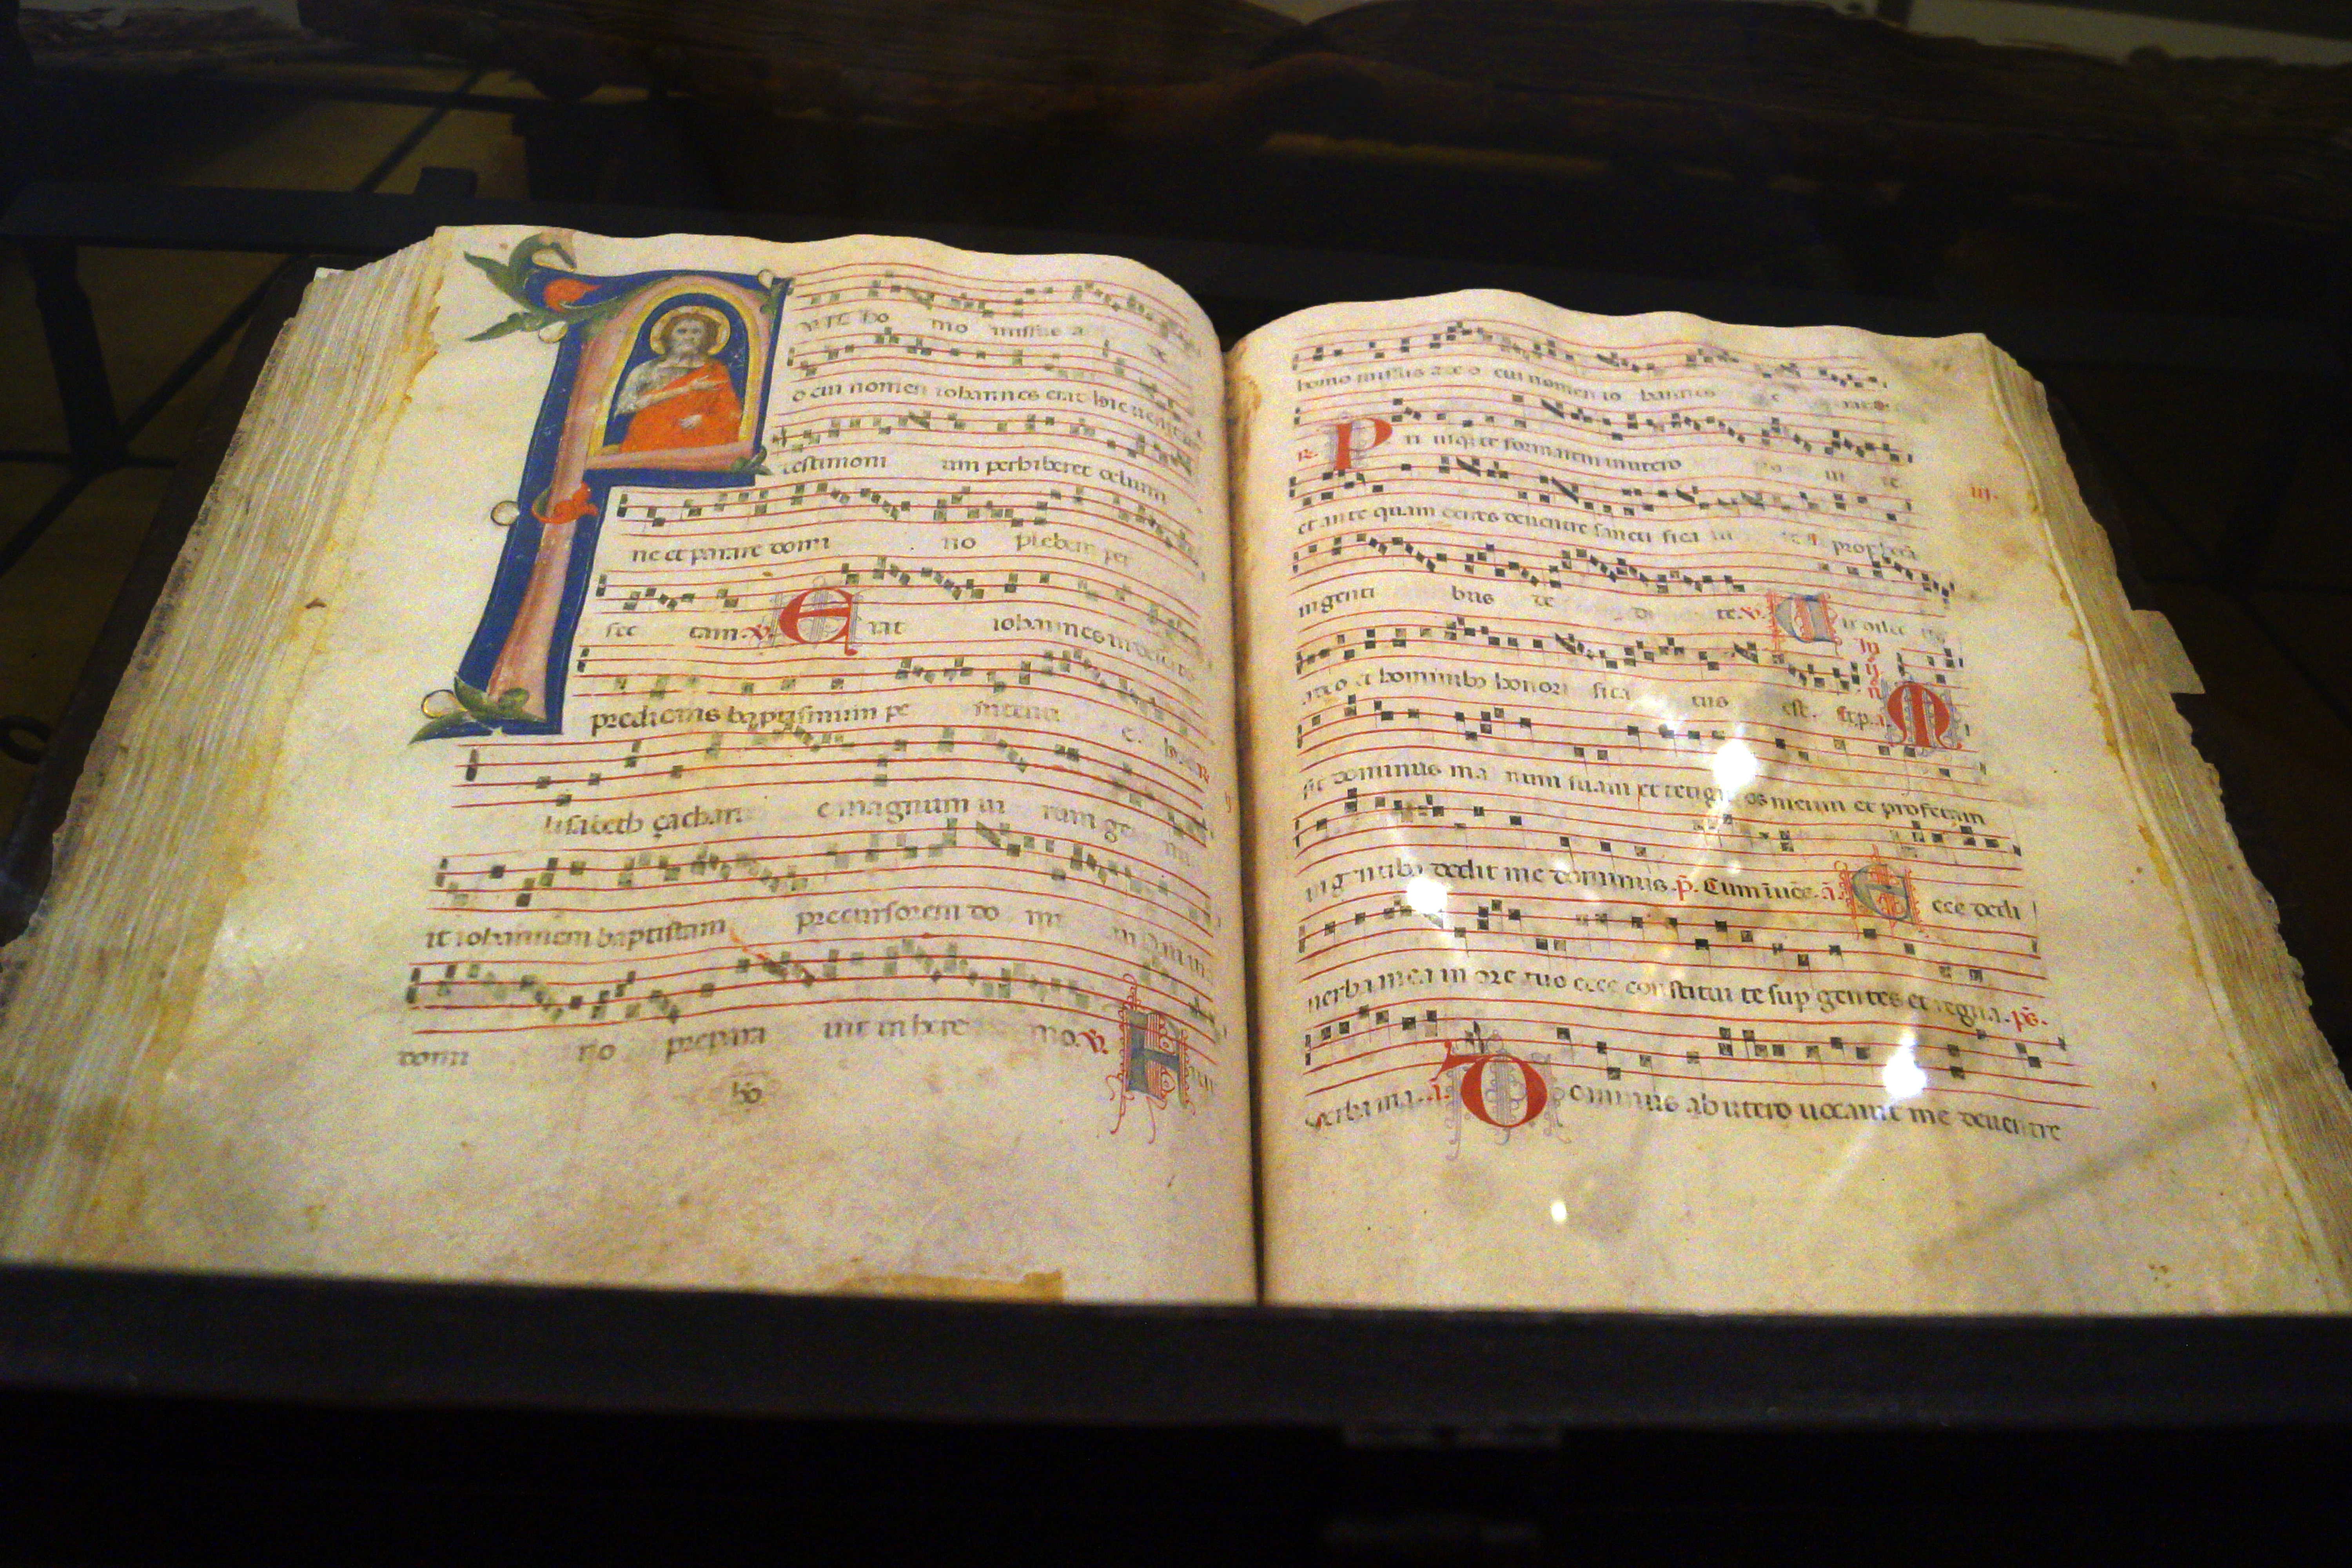 F uit ho mo missus a de
o cui nomen iohannes erat hic uenit
testimoni um perhiberet de lumi
ne et parare domi no plebem per
fec tam. V. E rat iohannes in deserto
predicans baptismum pe nitenti e. R.
lisabeth çachari e magnum ui rum ge nu
it iohannem baptistam precursorem do mi ni
domi no prepara uit in here mo. V. F uit
ho
homo missus a deo cui nomen io hannes e rat
R. P ri usquam te formarem in utero no ui te
et ante quam exires de uentre sancti fica ui te et prophetam
in genti bus de di te. V.
a deo et hominibus honori fica tus est. M
sit dominus ma num suam et tetigit os meum et prophetam
in gentibus dedit me dominus. p̄. Cum iuc̄. a. E cce dedi
uerba mea in ore tuo ecce constitui te sup gentes et regna. ps.
Verba mea. a. D ominus ab utero uocauit me de uentre
III.